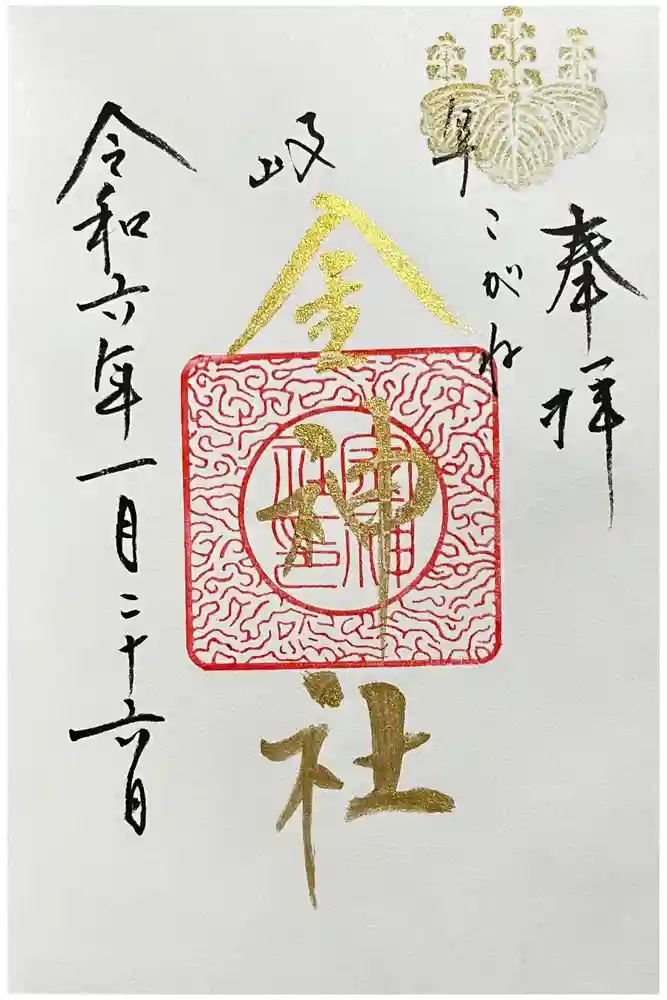 奉拝
阜こがね
岐
金神社
令和六年一月二十六日